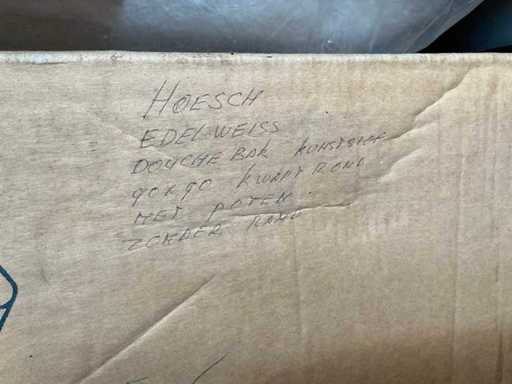 HOESCH
EDELWEISS
DOUCHE BAK KUNSTSTOF
90X90 KWART ROND
MET POTEN.
ZONDER RAND